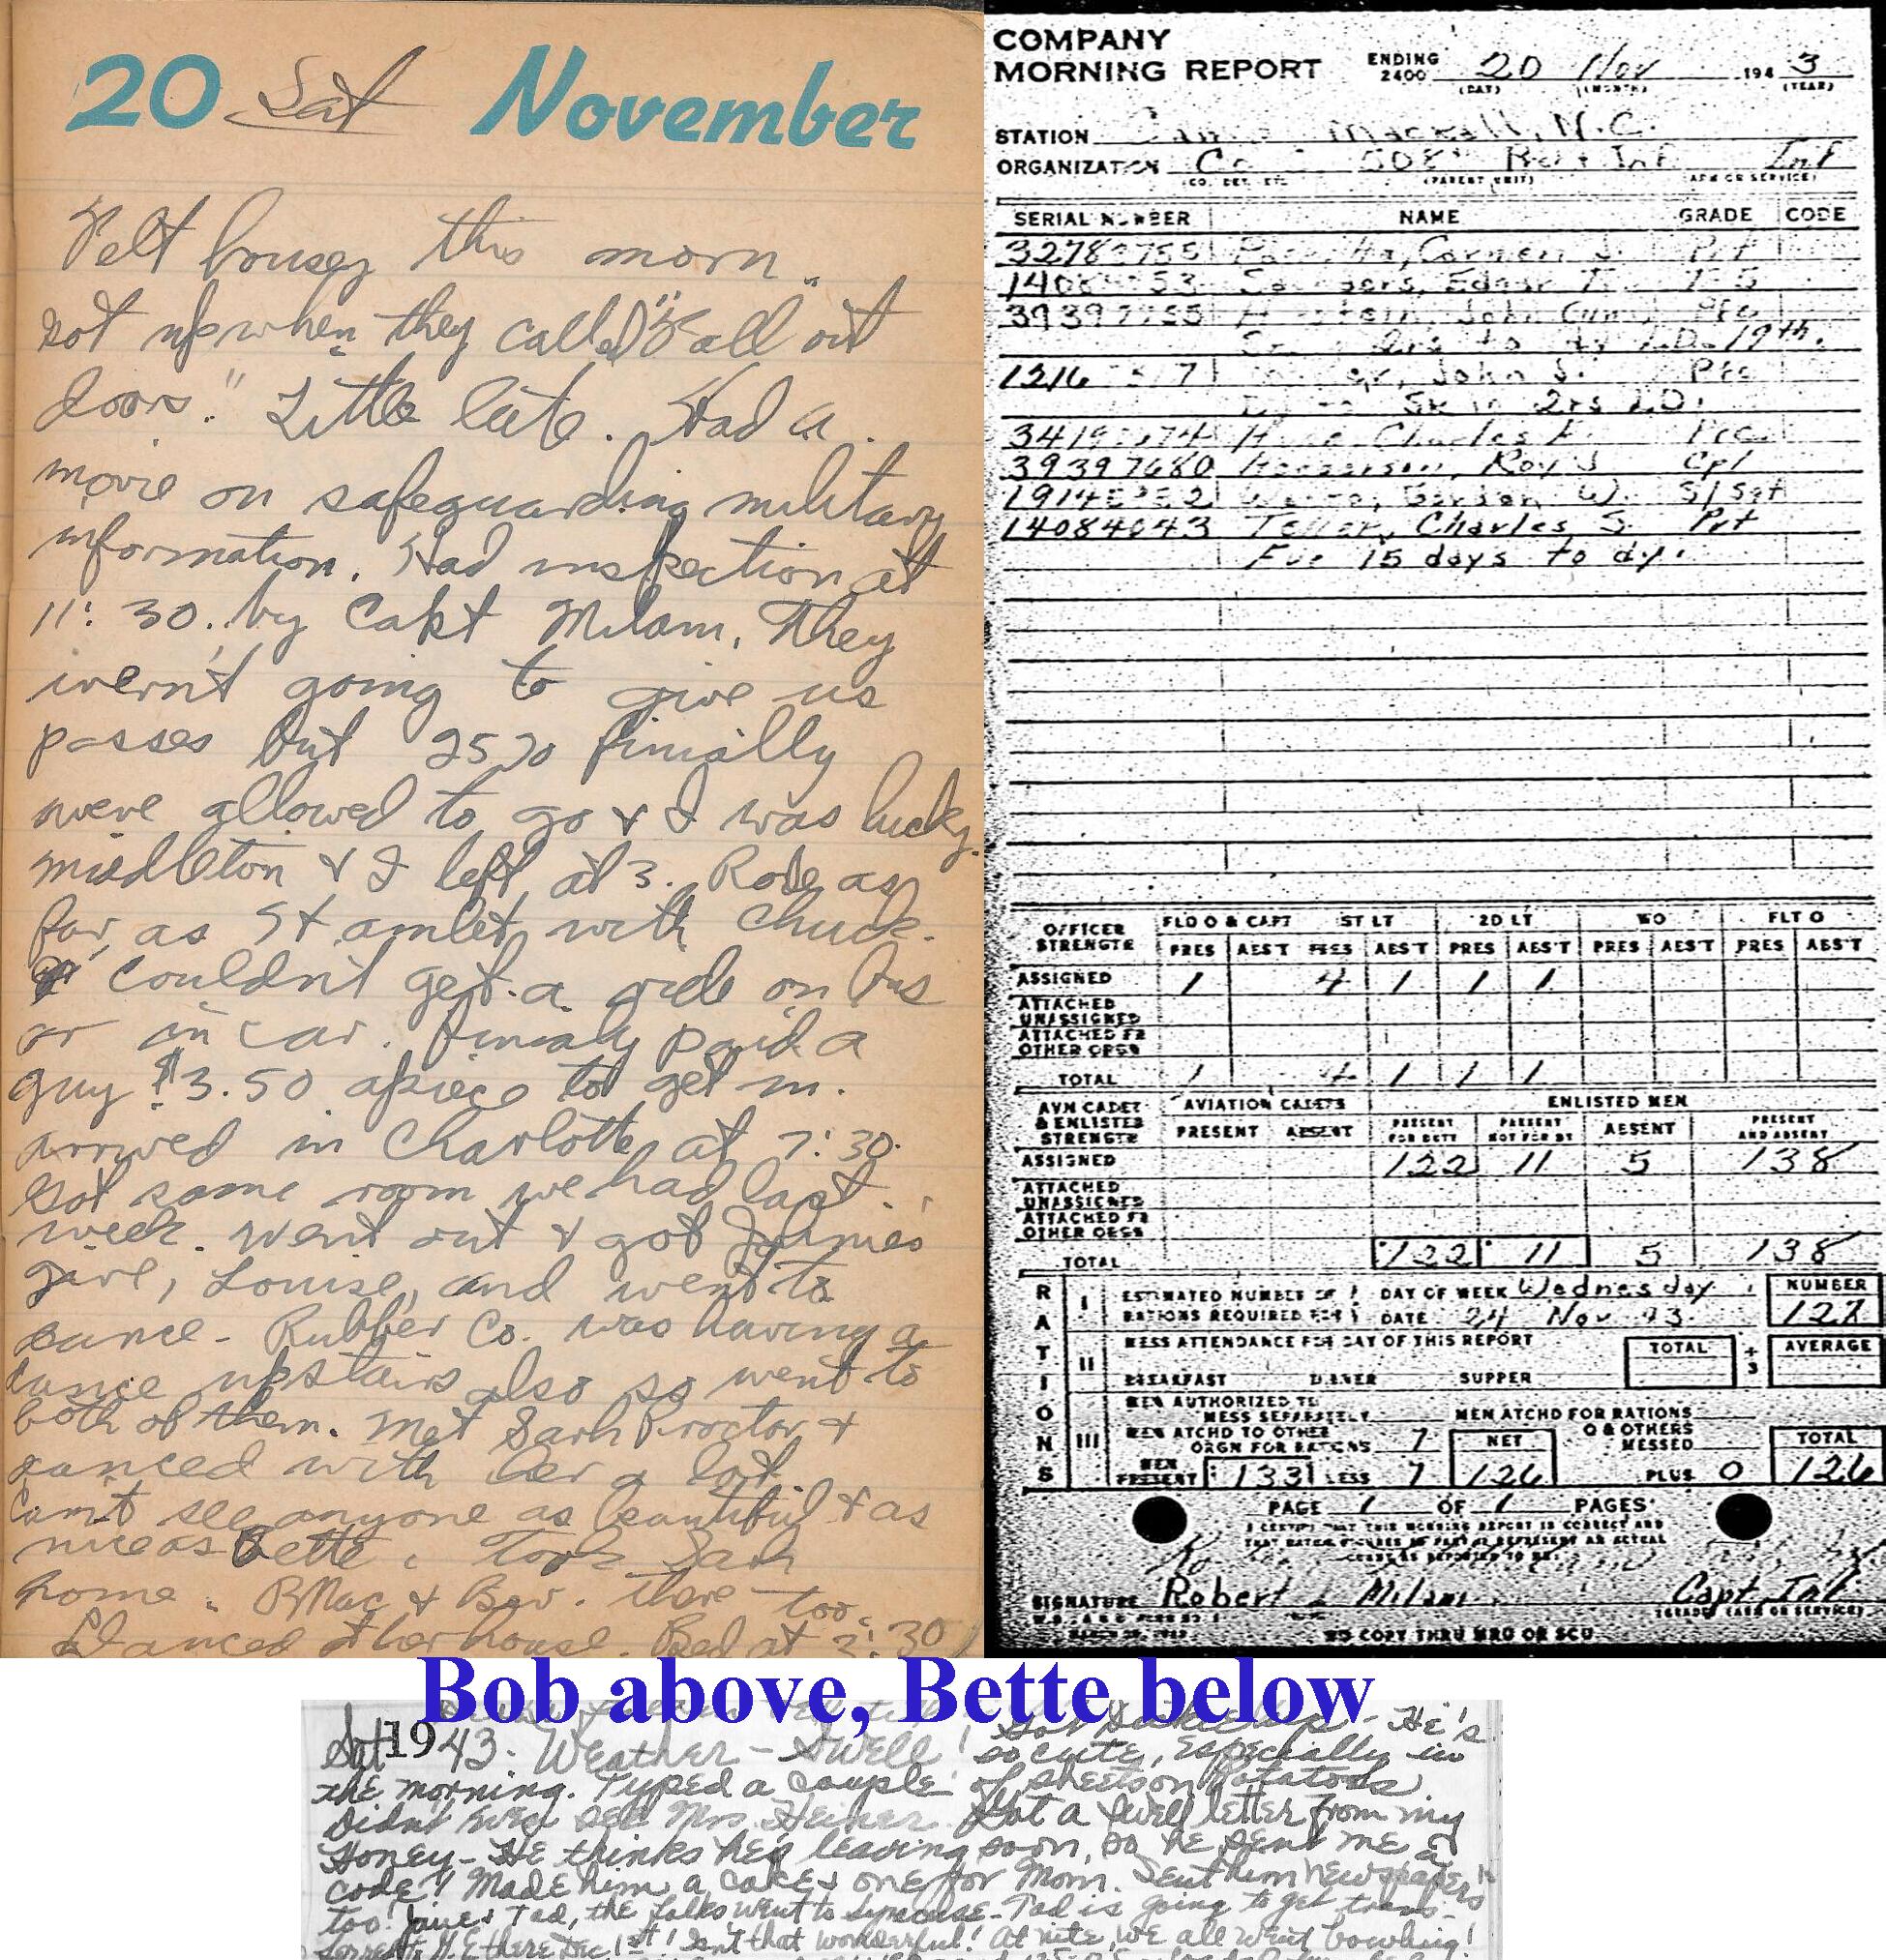 20 Sat November
Felt lousey this morn.
Got up when they called "all out
doors." Little late. Had a
movie on safeguarding military
information. Had inspection at
11:30 by Capt Milam. They
wern't going to give us
passes but 25% finially
were allowed to go & I was lucky.
Middleton & I left at 3. Rode as
far as with Chuck.
Couldn't get a ride on bus
or in car. Finialy paid a
guy $3.50 apiece to get in.
arrived in Charlotte at 7:30.
Got same room we had last
week. Went out & got
girl, Louise, and went to
dance - Rubber Co. was having a
dance upstairs also so went to
both of them. Met Sarh Proctor &
danced with her a lot.
Can't see anyone as beautiful & as
nice as Bette. Took Sarh
home. & Bev. there too.
Danced at her house. Bed at 2:30
COMPANY
MORNING REPORT ENDING 2400 20 Nov 1943
(DAY) (MONTH) (YEAR)
STATION Mackall, N.C.
ORGANIZATION Co 508th Inf Inf
(CO. DET. ETC.) (PARENT UNIT) (ARM OR SERVICE)
SERIAL NUMBER NAME GRADE CODE
Carmen J. Pvt
Edgar T.
John Pfc
to dy L.D. 19th.
John J. Pfc
Sk in Qrs LD.
Charles
39397680 Roy J Cpl
Gordon W. S/Sgt
14084043 Charles S. Pvt
Fur 15 days to dy.
OFFICER STRENGTH FLD O & CAPT 1ST LT 2D LT WO FLT O
PRES ABS'T PRES ABS'T PRES ABS'T PRES ABS'T PRES ABS'T
ASSIGNED 1 4 1 1 1
ATTACHED UNASSIGNED
ATTACHED FR OTHER ORGN
TOTAL 1 4 1 1 1
AVN CADET & ENLISTED STRENGTH AVIATION CADETS ENLISTED MEN
PRESENT ABSENT PRESENT FOR DUTY PRESENT NOT FOR DY ABSENT PRESENT AND ABSENT
ASSIGNED 122 11 5 138
ATTACHED UNASSIGNED
ATTACHED FR OTHER ORGN
TOTAL 122 11 5 138
RATIONS
I ESTIMATED NUMBER OF RATIONS REQUIRED FOR DAY OF WEEK Wednesday NUMBER
DATE 24 Nov 43
II MESS ATTENDANCE FOR DAY OF THIS REPORT TOTAL ÷ 3 AVERAGE
BREAKFAST DINNER SUPPER
III MEN AUTHORIZED TO MESS SEPARATELY MEN ATCHD FOR RATIONS
MEN ATCHD TO OTHER ORGN FOR RATIONS 7 NET O & OTHERS MESSED TOTAL
MEN PRESENT 133 LESS 7 126 PLUS 0 126
PAGE 1 OF 1 PAGES
I CERTIFY THAT THIS MORNING REPORT IS CORRECT AND
SIGNATURE Robert L Milam Capt Inf
(GRADE) (ARM OR SERVICE)
NO COPY THRU MRU OR SCU
Bob above, Bette below
Sat 1943. Weather - Swell! He's
so cute, especially in
the morning. Typed a couple of sheets on Potatoes
Didn't even see Mrs. Got a swell letter from my
Honey - He thinks he's leaving soon, so he sent me a
code! Made him a cake & one for Mom. Sent him newspapers
too! Tad, the folks went to Syracuse - Tad is going to get trans-
there Dec 1st! Isn't that wonderful! At nite, we all went bowling!